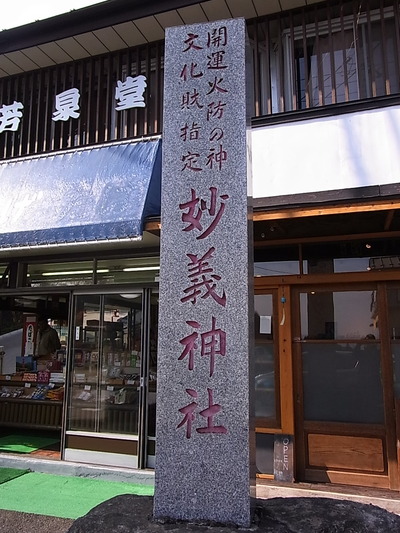 開運火防の神
文化財指定
妙義神社
芳泉堂
OPEN